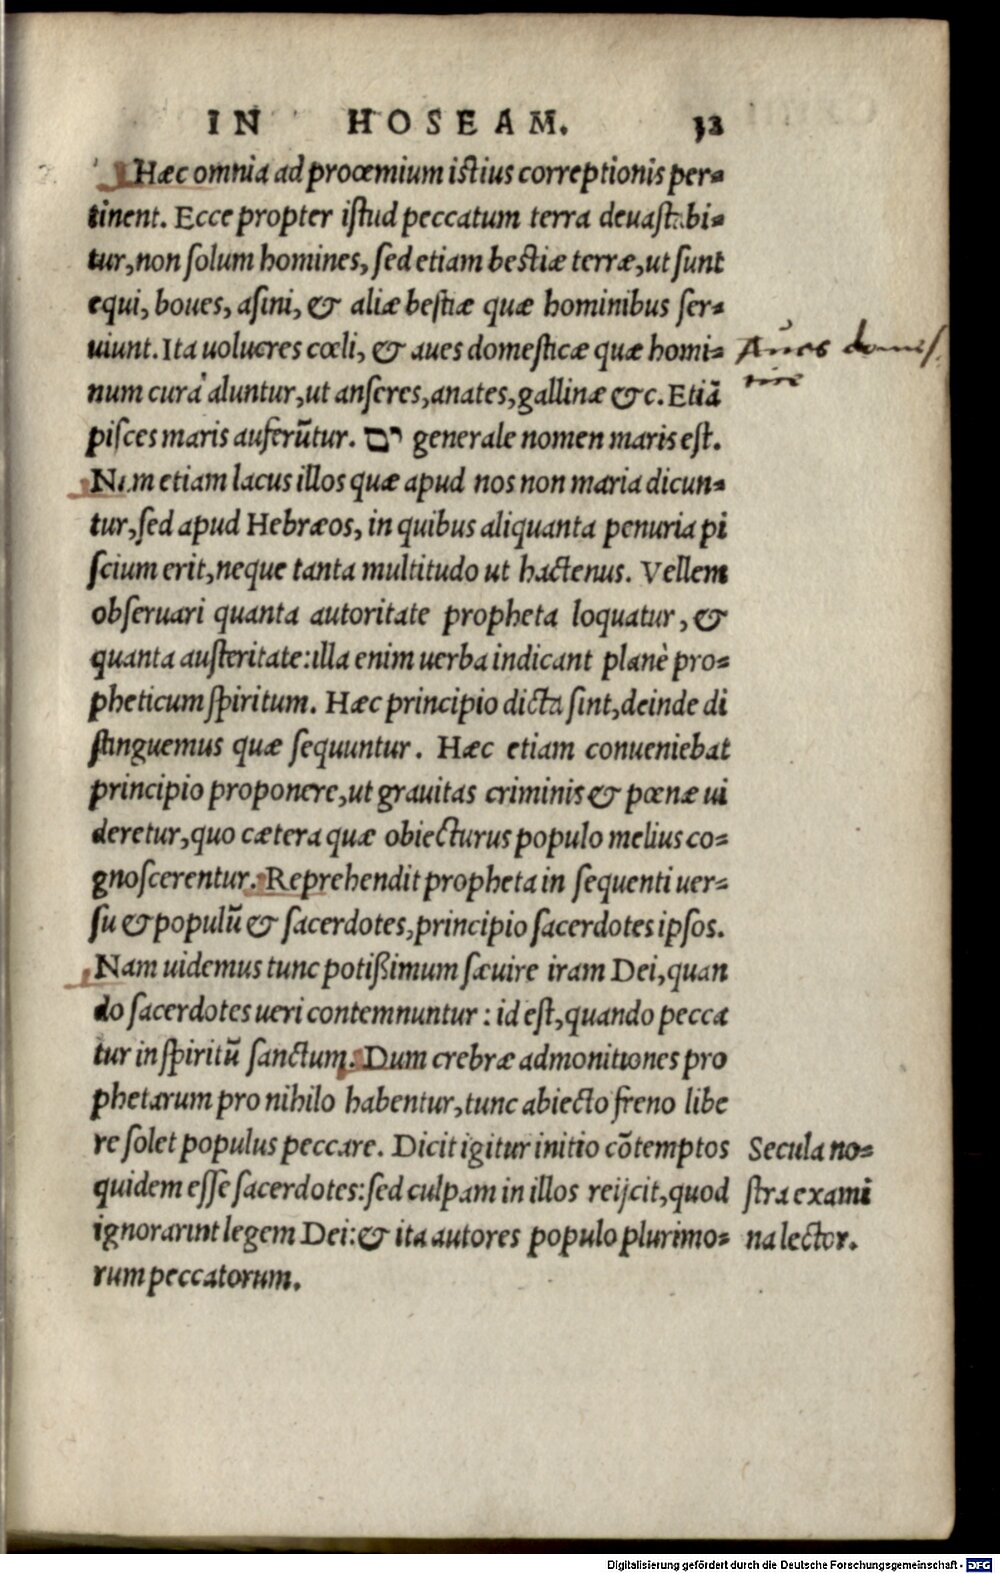 IN HOSEAM. 32
Hæc omnia ad proœmium istius correptionis per-
tinent. Ecce propter istud peccatum terra deuastabi-
tur, non solum homines, sed etiam bestiæ terræ, ut sunt
equi, boues, asini, & aliæ bestiæ quæ hominibus ser-
uiunt. Ita uolucres cœli, & aues domesticæ quæ homi-
num cura aluntur, ut anseres, anates, gallinæ &c. Etiā
pisces maris auferūtur. ים generale nomen maris est.
Nam etiam lacus illos quæ apud nos non maria dicun-
tur, sed apud Hebræos, in quibus aliquanta penuria pi
scium erit, neque tanta multitudo ut hactenus. Vellem
obseruari quanta autoritate propheta loquatur, &
quanta austeritate: illa enim uerba indicant planè pro-
pheticum spiritum. Hæc principio dicta sint, deinde di
stinguemus quæ sequuntur. Hæc etiam conueniebat
principio proponere, ut grauitas criminis & pœnæ ui
deretur, quo cætera quæ obiecturus populo melius co-
gnoscerentur. Reprehendit propheta in sequenti uer-
su & populū & sacerdotes, principio sacerdotes ipsos.
Nam uidemus tunc potißimum sæuire iram Dei, quan
do sacerdotes ueri contemnuntur: id est, quando pecca
tur in spiritū sanctum. Dum crebræ admonitiones pro
phetarum pro nihilo habentur, tunc abiecto freno libe
re solet populus peccare. Dicit igitur initio cōtemptos
quidem esse sacerdotes: sed culpam in illos reijcit, quod
ignorarint legem Dei: & ita autores populo plurimo-
rum peccatorum.
Aues domes
Secula no-
stra exami
na lector.
Digitalisierung gefördert durch die Deutsche Forschungsgemeinschaft - DFG